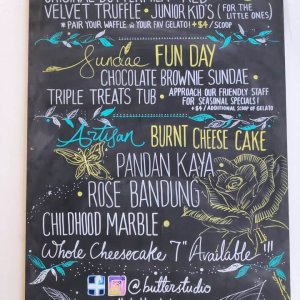 ORIGINAL BUTTERMILK • RED
VELVET TRUFFLE • JUNIOR KID'S (FOR THE LITTLE ONES)
* PAIR YOUR WAFFLE w/ YOUR FAV GELATO + $4 / SCOOP
Sundae FUN DAY
CHOCOLATE BROWNIE SUNDAE •
TRIPLE TREATS TUB • APPROACH OUR FRIENDLY STAFF
FOR SEASONAL SPECIALS!
+ $4 / ADDITIONAL SCOOP OF GELATO
Artisan BURNT CHEESE CAKE
PANDAN KAYA •
• ROSE BANDUNG
CHILDHOOD MARBLE •
Whole Cheesecake 7" Available !!!
@butterstudio